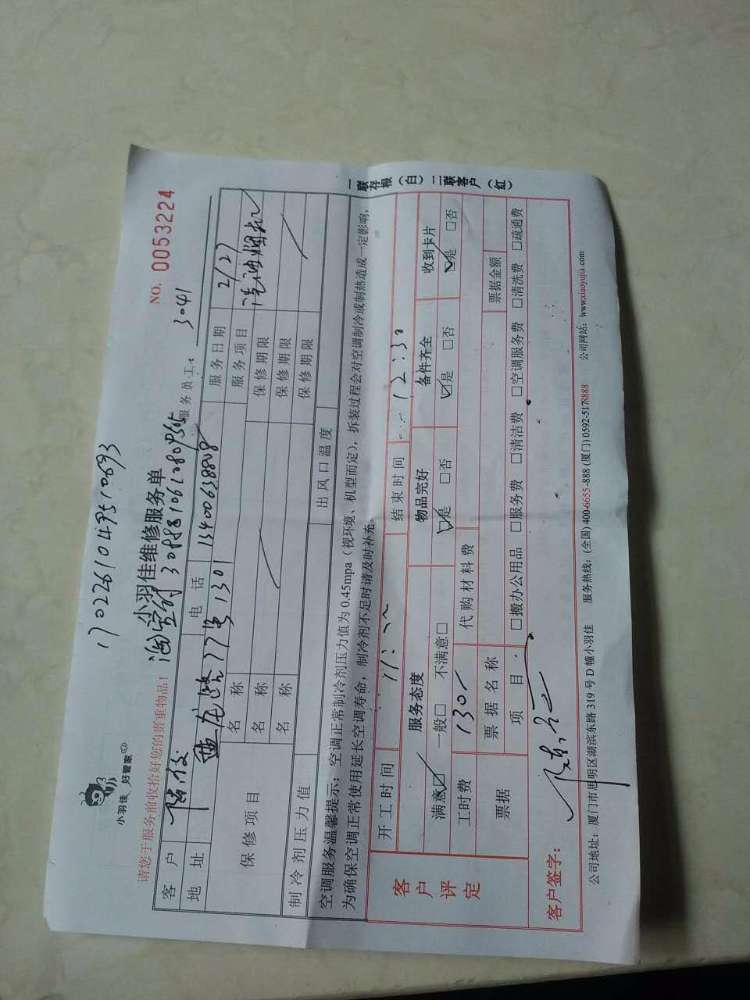 1702261049510693
小羽佳 好管家
小羽佳维修服务单
NO. 0053224
请您于服务前收拾好您的贵重物品!
服务员工: 3041
客户
电话 13400638808
服务日期 2/27
地址 77号1301
服务项目 洗油烟机
保修项目
名称
保修期限
名称
保修期限
名称
保修期限
制冷剂压力值
出风口温度
空调服务温馨提示:空调正常制冷剂压力值为0.45mpa(视环境、机型而定),拆装过程会对空调制冷或制热造成一定影响,
为确保空调正常使用延长空调寿命,制冷剂不足时请及时补充。
一联存根(白)二联客户(红)
客户评定
开工时间
结束时间 12:30
服务态度
物品完好
备件齐全
收到卡片
满意☑ 一般□ 不满意□
☑是 □否
☑是 □否
☑是 □否
工时费
代购材料费
票据
票据名称
票据金额
项目
□搬办公用品 □服务费 □清洁费 □空调服务费 □清洗费 □疏通费
客户签字:
公司地址:厦门市思明区湖滨东路319号D幢小羽佳 服务热线:(全国)400-6655-888 (厦门)0592-5178888 公司网站:www.xiaoyujia.com